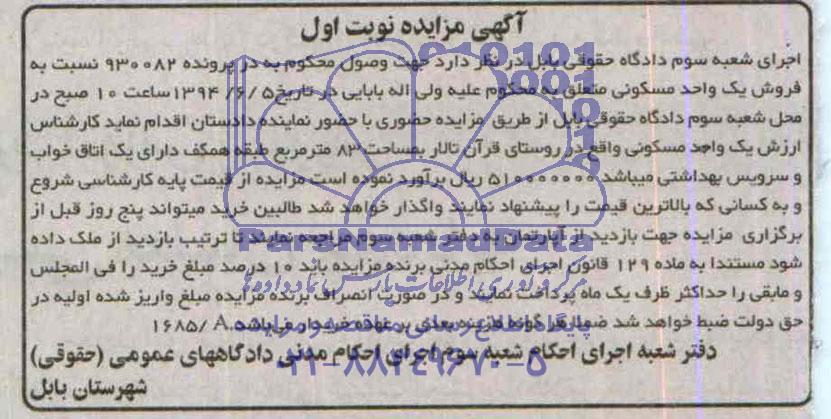 آگهی مزایده نوبت اول
اجرای شعبه سوم دادگاه حقوقی بابل در نظر دارد جهت وصول محکوم به در پرونده ۹۳۰۰۸۲ نسبت به
فروش یک واحد مسکونی متعلق به محکوم علیه ولی اله بابایی در تاریخ ۵ /۶/ ۱۳۹۴ ساعت ۱۰ صبح در
محل شعبه سوم دادگاه حقوقی بابل از طریق مزایده حضوری با حضور نماینده دادستان اقدام نماید کارشناس
ارزش یک واحد مسکونی واقع در روستای قرآن تالار بمساحت ۸۳ مترمربع طبقه همکف دارای یک اتاق خواب
و سرویس بهداشتی میباشد ۵۱۰۰۰۰۰۰۰ ریال برآورد نموده است مزایده از قیمت پایه کارشناسی شروع
و به کسانی که بالاترین قیمت را پیشنهاد نمایند واگذار خواهد شد طالبین خرید میتواند پنج روز قبل از
برگزاری مزایده جهت بازدید از آپارتمان به دفتر شعبه سوم مراجعه نمایند تا ترتیب بازدید از ملک داده
شود مستندا به ماده ۱۲۹ قانون اجرای احکام مدنی برنده مزایده باید ۱۰ درصد مبلغ خرید را فی المجلس
و مابقی را حداکثر ظرف یک ماه پرداخت نمایند و در صورت انصراف برنده مزایده مبلغ واریز شده اولیه در
حق دولت ضبط خواهد شد ضمنا هر گونه هزینه بعدی بر عهده خریدار می باشد. A /۱۶۸۵
دفتر شعبه اجرای احکام شعبه سوم اجرای احکام مدنی دادگاههای عمومی (حقوقی)
شهرستان بابل
ParsNamadData
مرکز فرآوری اطلاعات پارس نماد داده ها
۰۲۱-۸۸۳۴۹۶۷۰-۵